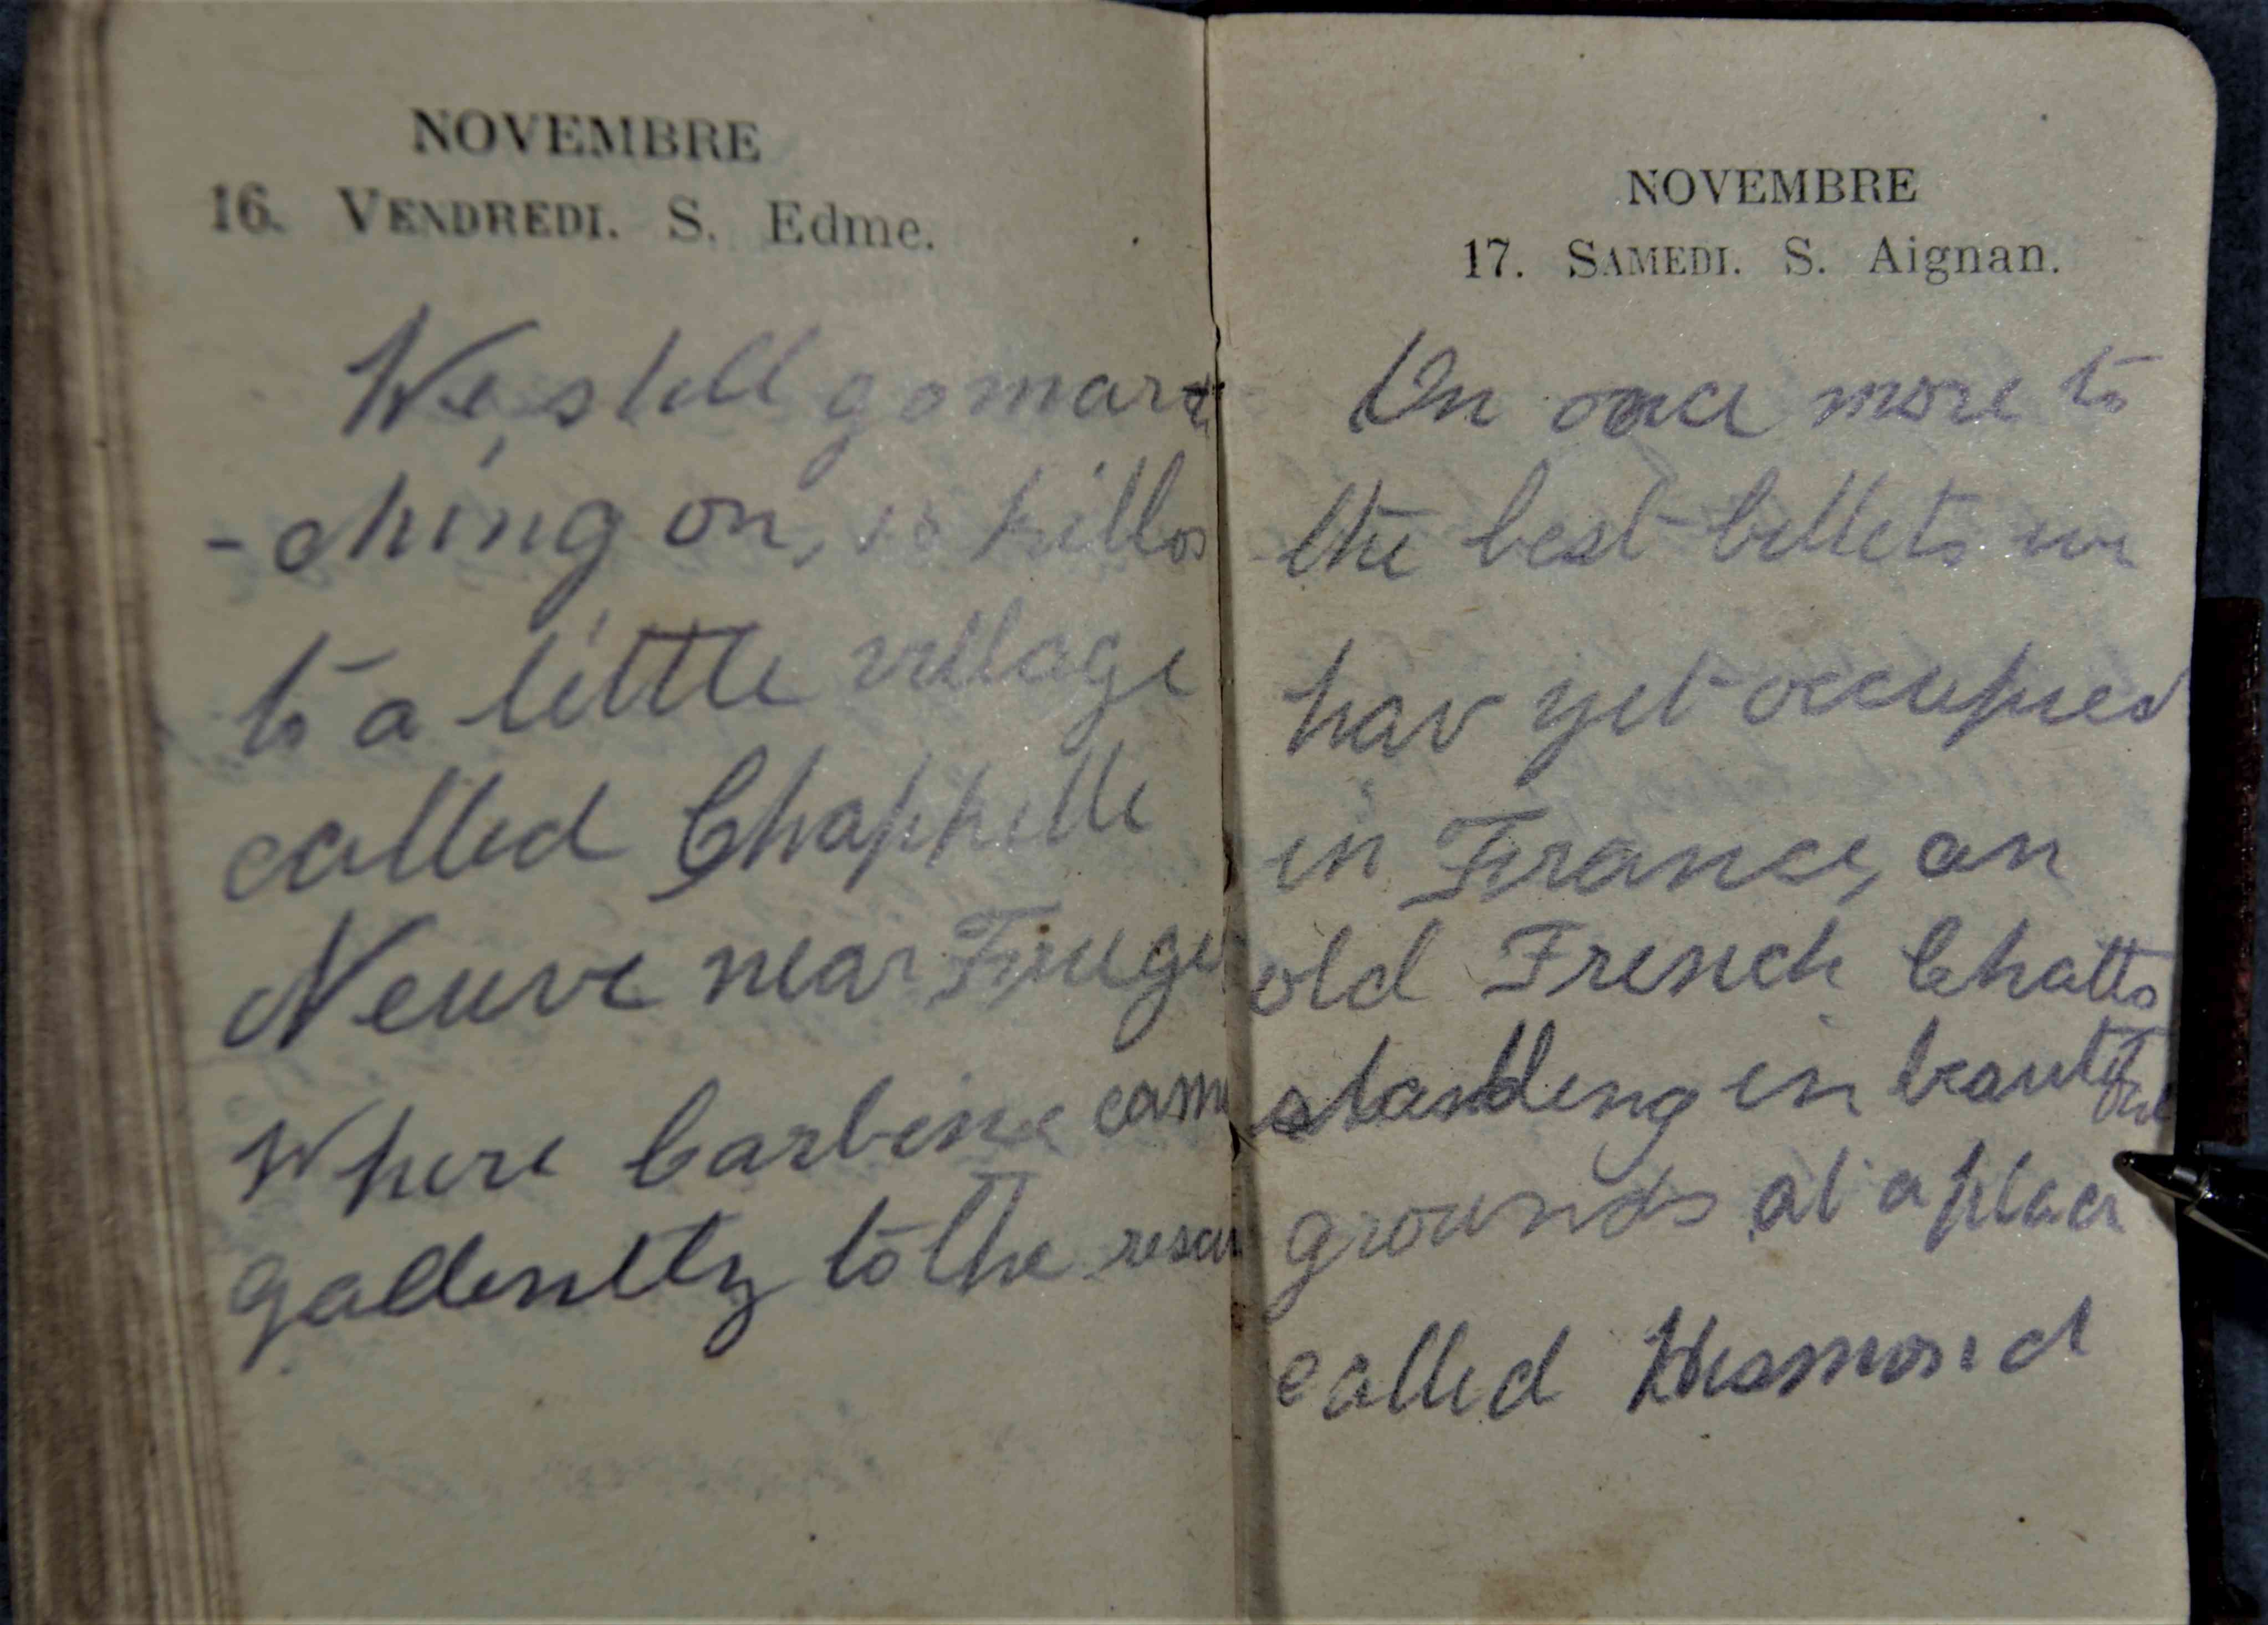 NOVEMBRE
16. VENDREDI. S. Edme.
We still go mar
-ching on, 18 killos
to a little village
called Chappelle
Neuve near Fruge
Where Carbine came
gallently to the rescu
NOVEMBRE
17. SAMEDI. S. Aignan.
On once more to
the best billets we
hav yet occupied
in France, an
old French Chatto
standing in beautiful
grounds at a place
called Hesmond